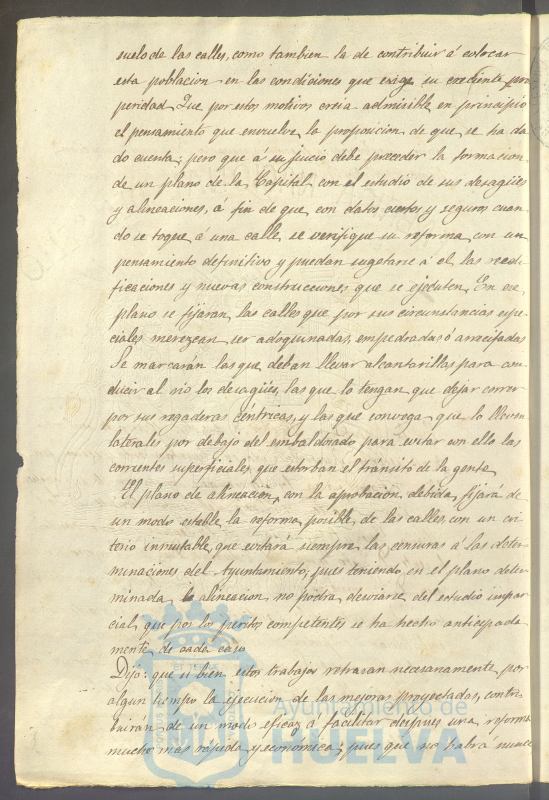 suelo de las calles, como tambien la de contribuir á colocar
esta poblacion en las condiciones que exige su creciente pros
peridad. Que por estos motivos creia admisible en principio
el pensamiento que envuelve la proposicion de que se ha da
do cuenta; pero que á su juicio debe preceder la formacion
de un plano de la Capital con el estudio de sus desagües
y alineaciones, á fin de que con datos ciertos y seguros cuan
do se toque á una calle se verifique su reforma con un
pensamiento definitivo y puedan sugetarse á él las reedi
ficaciones y nuevas construcciones que se ejecuten. En ese
plano se fijaran las calles que por sus circunstancias espe
ciales merezcan ser adoquinadas, empedradas ó arrecifadas
Se marcaran las que deban llevar alcantarillas para con
ducir al rio los desagües, las que lo tengan que dejar correr
por sus regaderas centricas, y las que convega que lo lleven
laterales por debajo del embaldosado para evitar con ello las
corrientes superficiales que estorban el tránsito de la gente
El plano de alineacion, con la aprobacion debida, fijará de
un modo estable la reforma posible de las calles, con un cri
terio inmutable, que evitará siempre las censuras á las deter
minaciones del Ayuntamiento; pues teniendo en el plano deter
minada la alineacion no podra desviarse del estudio impar
cial que por los peritos competentes se ha hecho anticipada
mente de cada caso
Dijo: que si bien estos trabajos retrasan necesariamente por
algun tiempo la ejecucion de las mejoras proyectadas, contri
buiran de un modo eficaz á facilitar despues una reforma
mucho más rápida y economica; pues que no habrá nunca
Ayuntamiento de
HUELVA